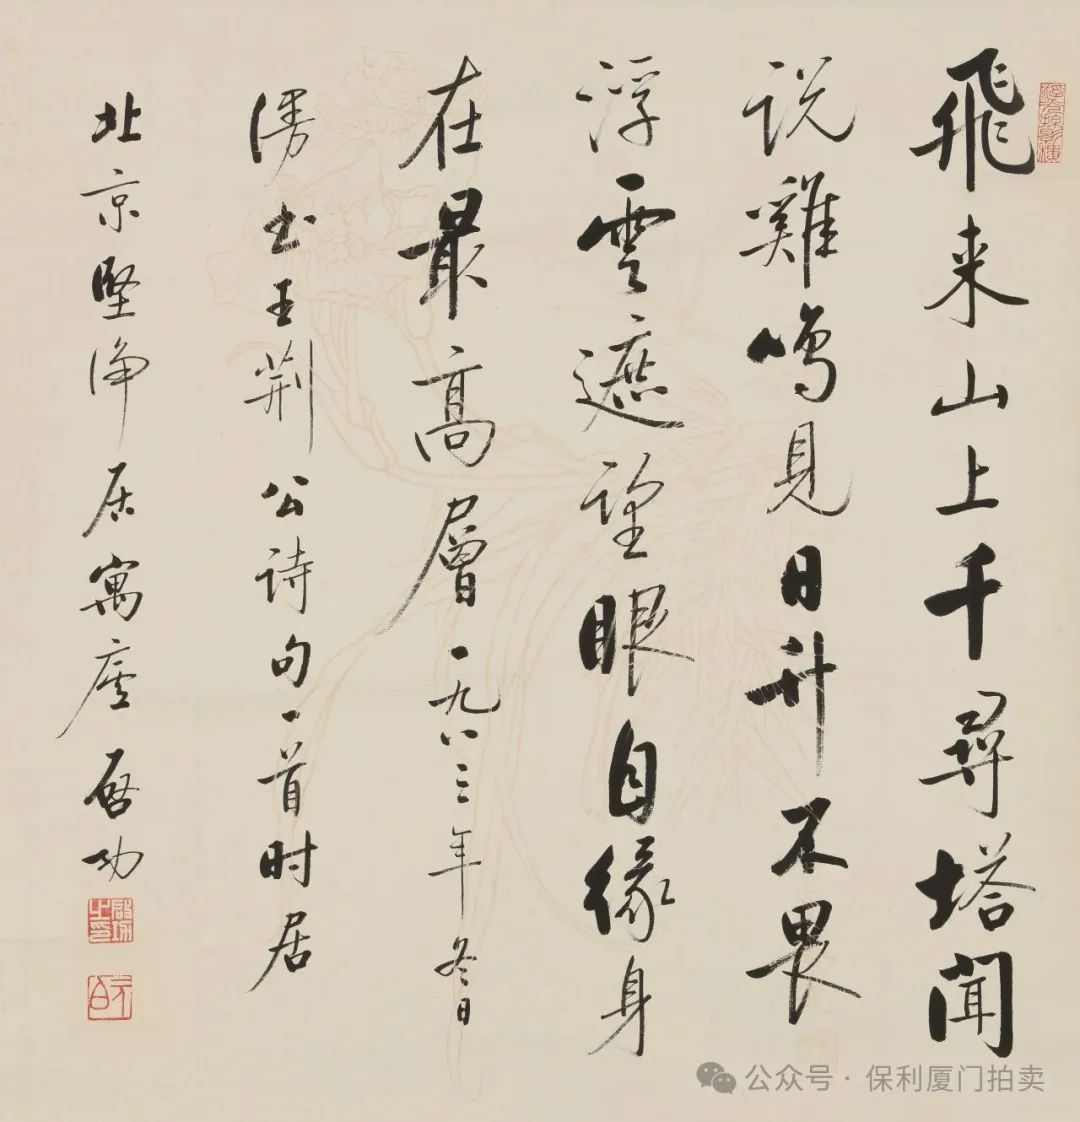 飛来山上千尋塔聞
说雞鳴見日升不畏
浮雲遮望眼自緣身
在最高層 一九八三年冬日
漫书王荆公诗句一首时居
北京堅净居寓廬 启功
浮光掠影樓
啟功之印
元白
公众号 · 保利厦门拍卖